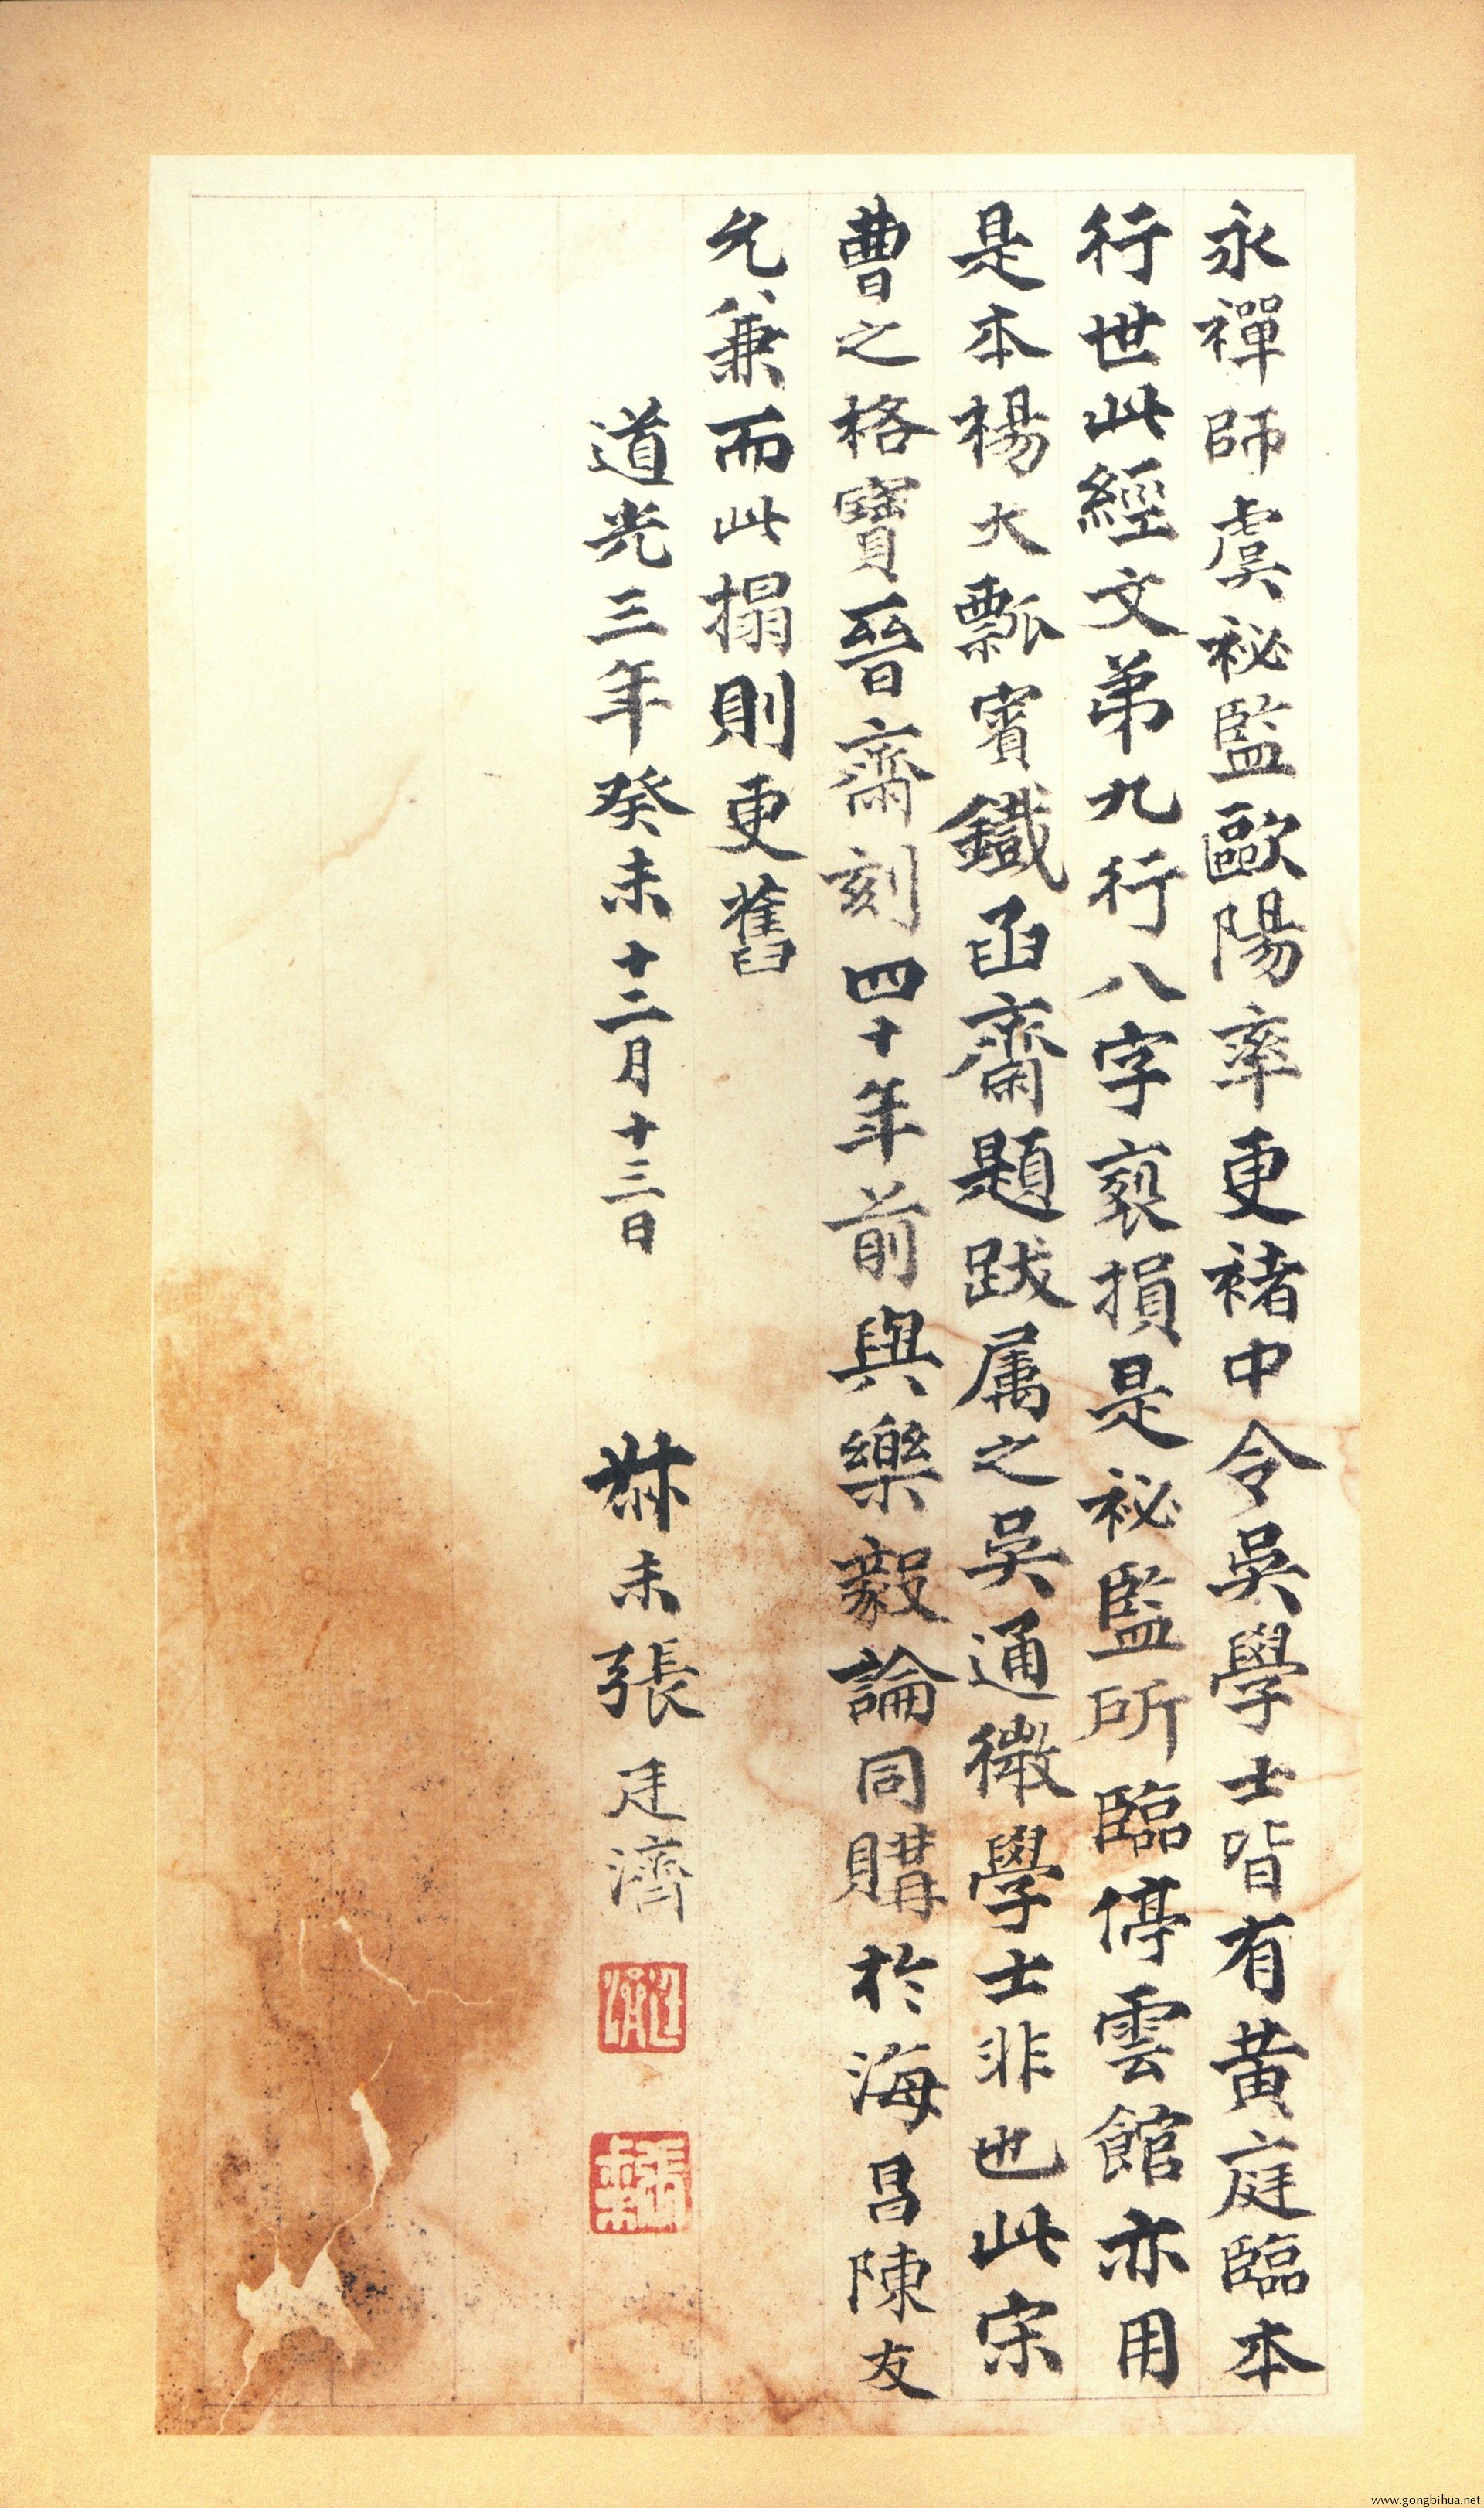 永禪師虞祕監歐陽率更褚中令吳學士皆有黃庭臨本
行世此經文弟九行八字褻損是祕監所臨停雲館亦用
是本楊大瓢賓鐵函齋題跋属之吳通微學士非也此宋
曹之格寶晉齋刻四十年前與樂毅論同購於海昌陳友
允兼而此搨則更舊
道光三年癸未十二月十三日 尗未張廷濟
廷濟
張尗未
www.gongbihua.net